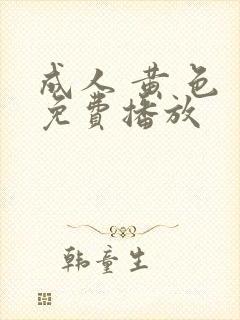 成人黄色
免費播放
韩童生